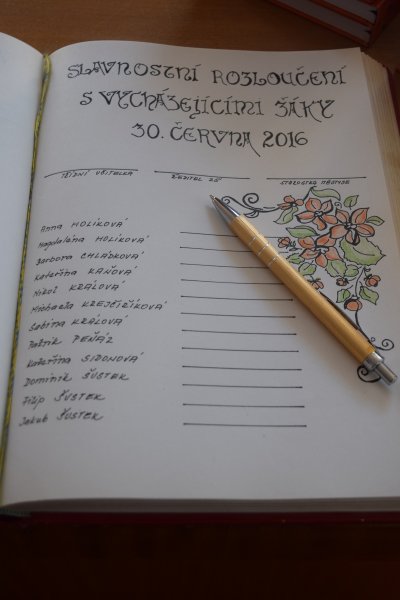 SLAVNOSTNÍ ROZLOUČENÍ
S VYCHÁZEJÍCÍMI ŽÁKY
30. ČERVNA 2016
TŘÍDNÍ UČITELKA ŘEDITEL ZŠ STAROSTA MĚSTYSE
Anna HOLÍKOVÁ
Magdaléna HOLÍKOVÁ
Barbora CHLÁDKOVÁ
Kateřina KAŇOVÁ
Nikol KRÁLOVÁ
Michaela KREJČIŘÍKOVÁ
Sabina KRÁLOVÁ
Patrik PEŇÁZ
Kateřina SIDONOVÁ
Dominik ŠUSTEK
Filip ŠUSTEK
Jakub ŠUSTEK